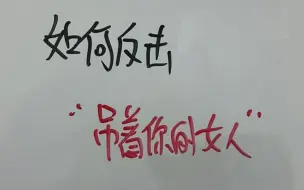 如何反击
“吊着你的女人”